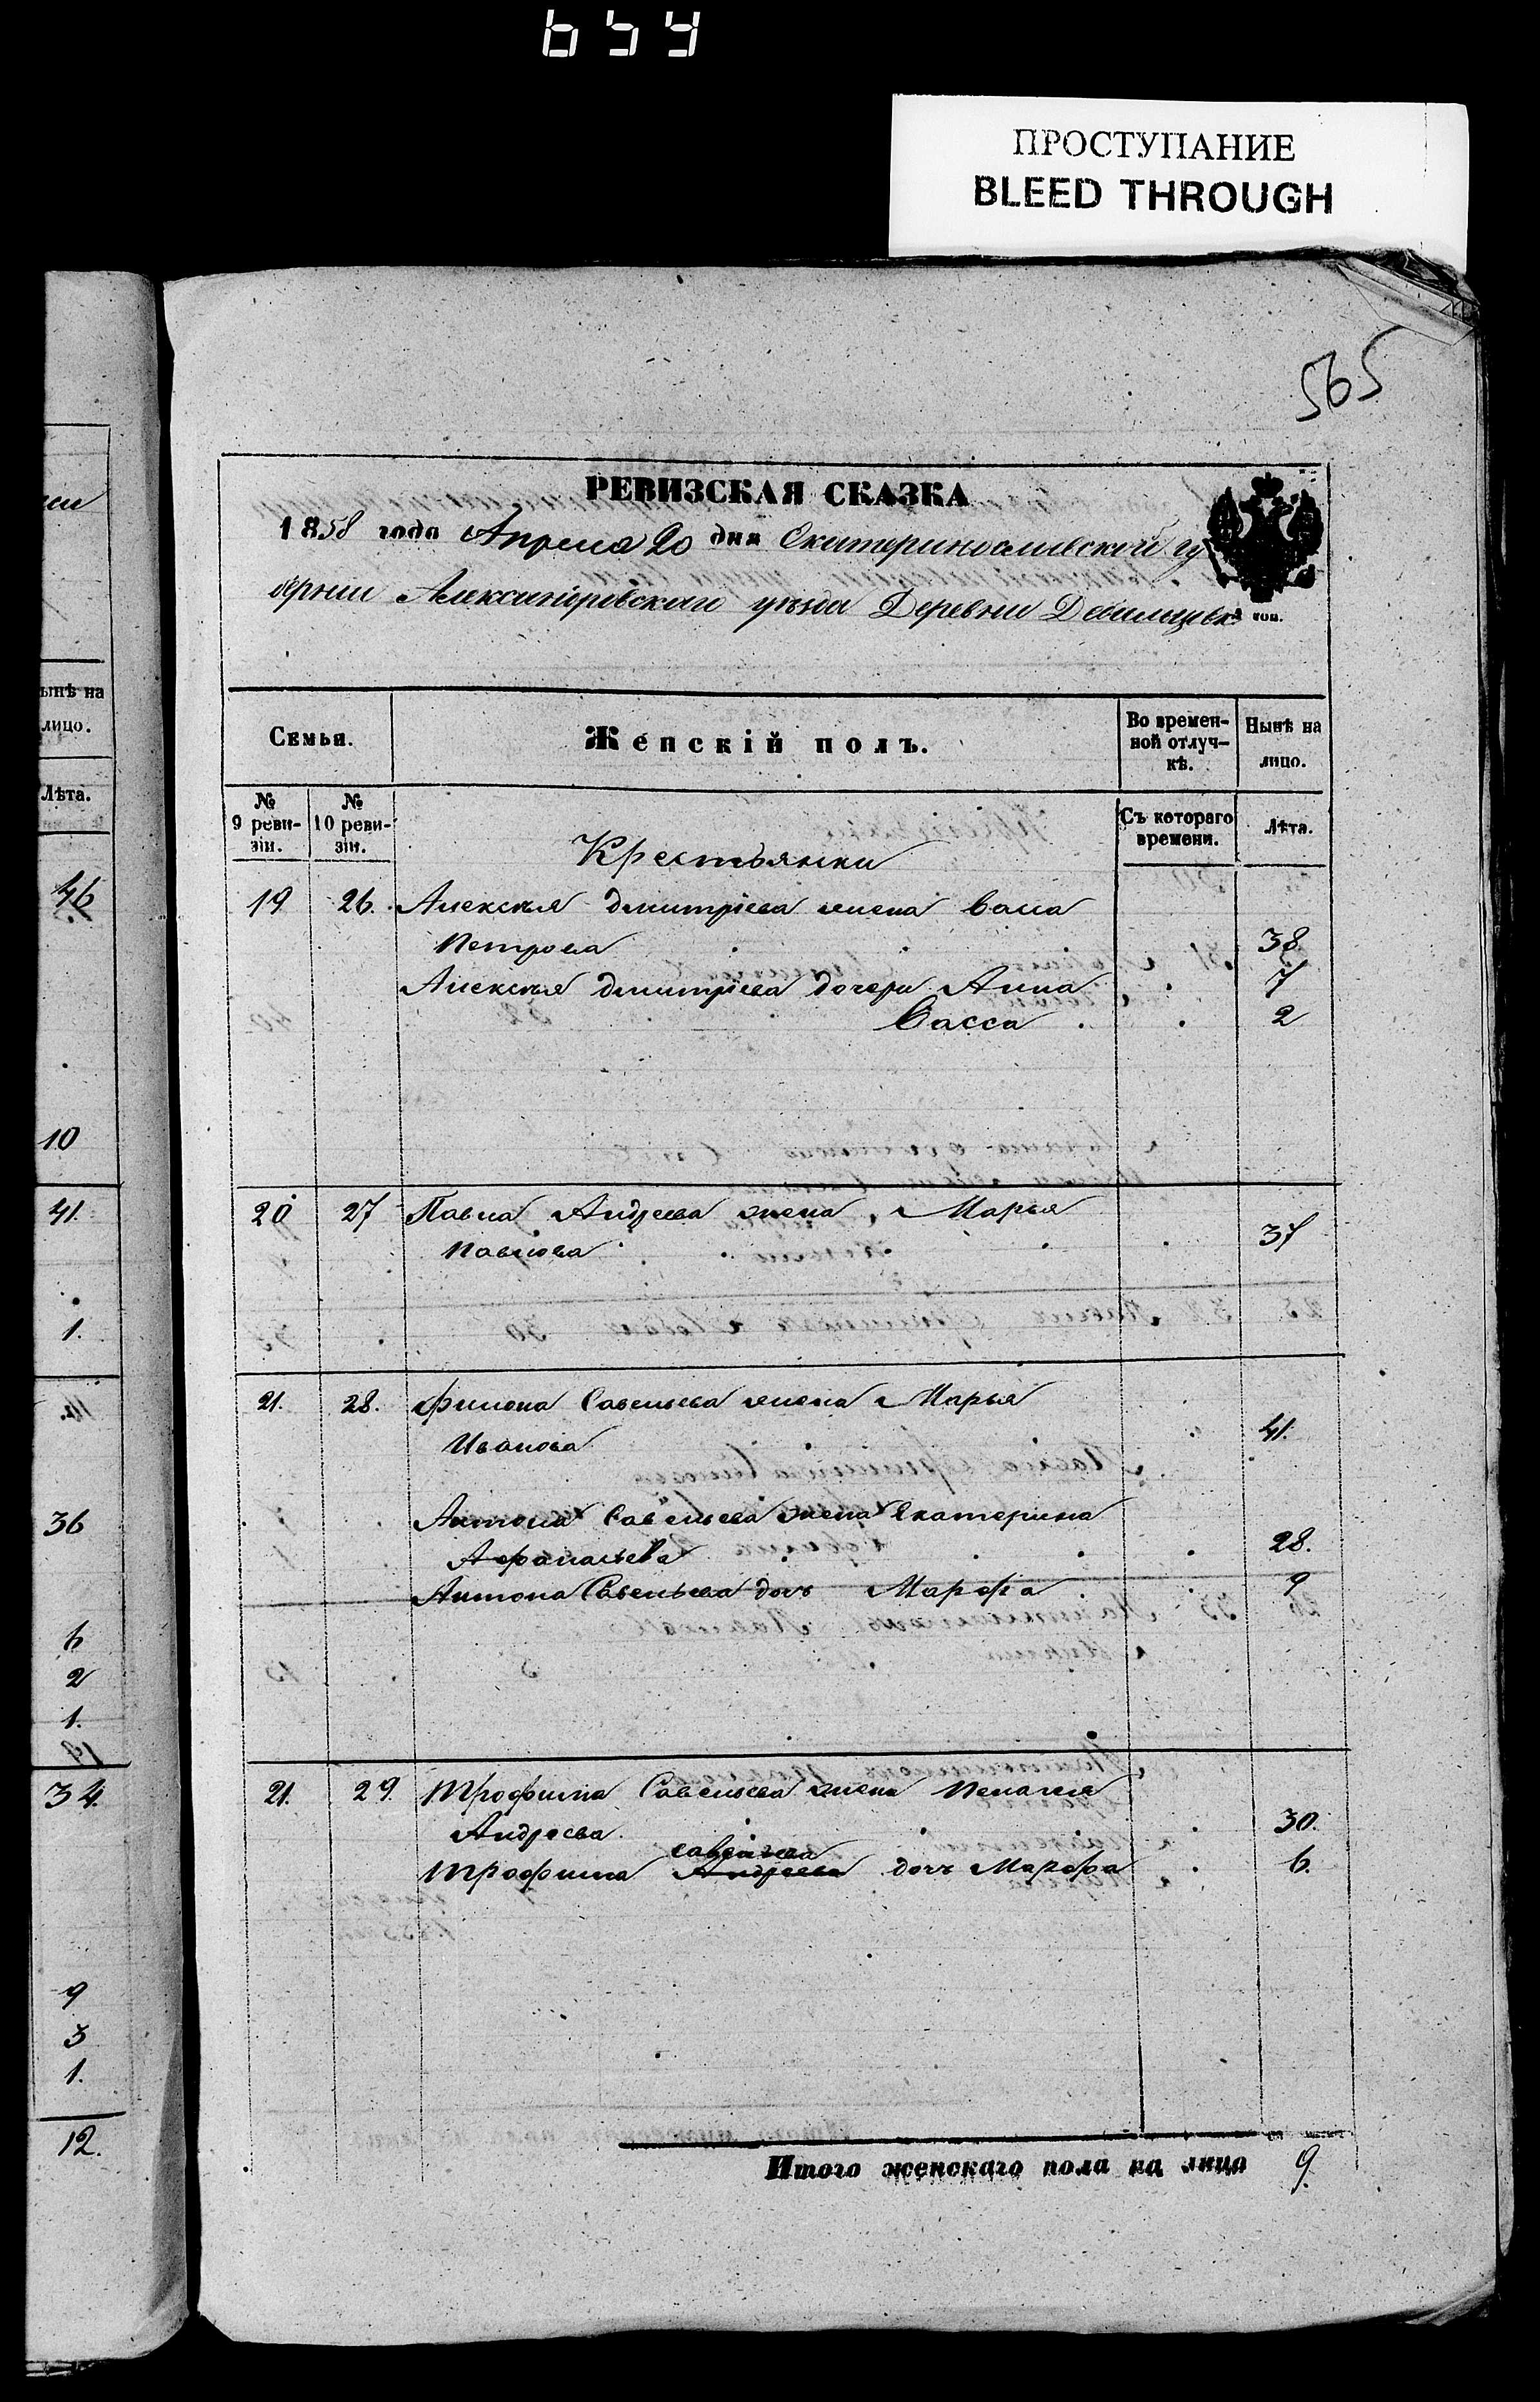 ПРОСТУПАНИЕ
BLEED THROUGH
565
РЕВИЗСКАЯ СКАЗКА
1858 года Апреля 20 дня Екатеринославской гу
бернии Александровскаго уѣзда Деревни
Семьи.
Женскій полъ.
Во времен-
ной отлуч-
кѣ.
Нынѣ на
лицо.
№
9 реви-
зіи.
№
10 реви-
зіи.
Съ котораго
времени.
Лѣта.
Крестьянки
19 26. Алексѣя Дмитріева жена Васса
Петрова 38
Алексѣя Дмитріева дочери Анна 7
Васса 2
20 27 Павла Андреева жена Марья
Павлова 37
21. 28. Филона Савельева жена Марья
Иванова 41.
Антона Савельева жена Екатерина
Афанасьева 28.
Антона Савельева дочь Марфа 9
21. 29. Трофима Савельева жена Пелагея
Андреева 30.
савельева
Трофима Андреева дочь Марфа 6.
Итого женскаго пола на лицо 9.
ынѣ на
лицо.
Лѣта.
46
10
41.
1.
36
6
2
1.
34.
9
3
1.
12.